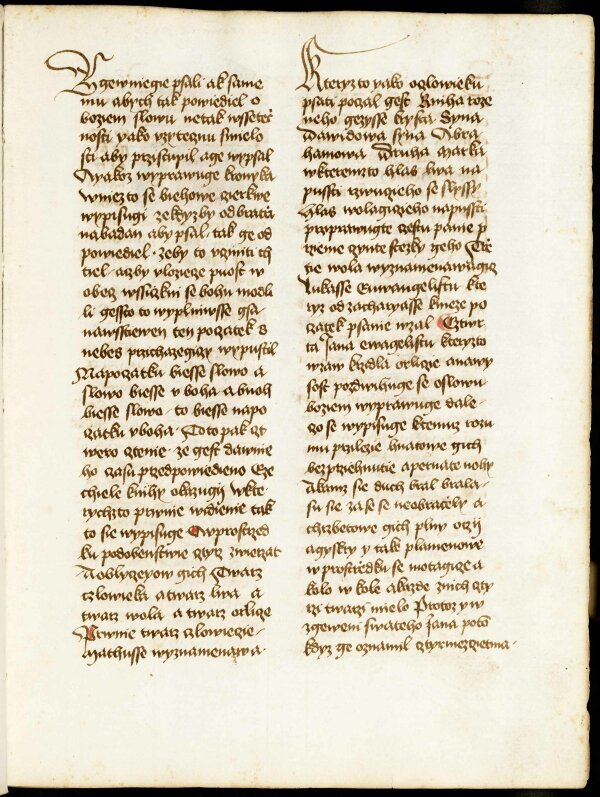 gewmiegie psali ak same
mu abych tak powiediel o
boziem slowu netak wssetecz
nosti yako vzytecznu smielo
sti aby przistupil age wypsal
Ayakoz wyprawuge kronyka
wniezto se biehowe czierkwe
wypisugi ze kdyzby od bratrzi
nabadan aby psal tak ge od
powiediel zeby to vczinti ch
tiel aczby vlozicze puost w
obecz wssiczkni se bohu modli
li gessto to wyplniwsse gsa
nawsstiewen ten poczatek s
nebes przichazegiczy wypustil
Napoczatku biesse slowo a
slowo biesse v boha a buoh
biesse slowo to biesse napo
czatku v boha Toto pak cz
wero cztenie ze gest dawnie
ho czasu przedpowiedieno Eze
chiele knihy okazugij wkte
rychzto prwnie widienie tak
to sie wypisuge Wprostrzed
ku podobenstwie cztyrz zwierzat
A oblyczeyow gich Twarz
czlowieka a twarz lwa a
twarz wola a twarz orlicze
Prwnie twarz czlowiecze
Mathusse wyznamenawa
Kteryzto yako o czlowieku
psati poczal gest Kniha roze
neho gezysse krysta Syna
dawidowa syna Abra
hamowa Druha Marka
wkteremzto hlas lwa na
pussti rzwuczieho se slyssy
hlas wolagiczieho napussti
przyprawugte czestu panie p
rzieme czynte stezky geho Trze
tie wola wyznamenawagicz
lukasse Ewangelistu kte
ryz od zachayasse knieze po
czatek psanie wzal Cztwr
ta Jana ewagelistu kteryzto
wzaw krzidla orlicze anawy
sost pozdwihuge se oslowu
boziem wyprawuge dale
czo se wypisuge ktemuz rozu
mu przilezie hnatowe gich
bezprziehnutie a pernate nohy
A kamz sie duch bral brala
su sie za se se neobratily a
chrzbetowe gich plny oczij
agyskry y tak plamenowe
w prostrziedku se motagicze a
kolo w kole akazde znich czty
rzi twarzi mielo Protoz y w
zgeweni swateho Jana poto
kdyz ge oznamil cztyrmezczietma